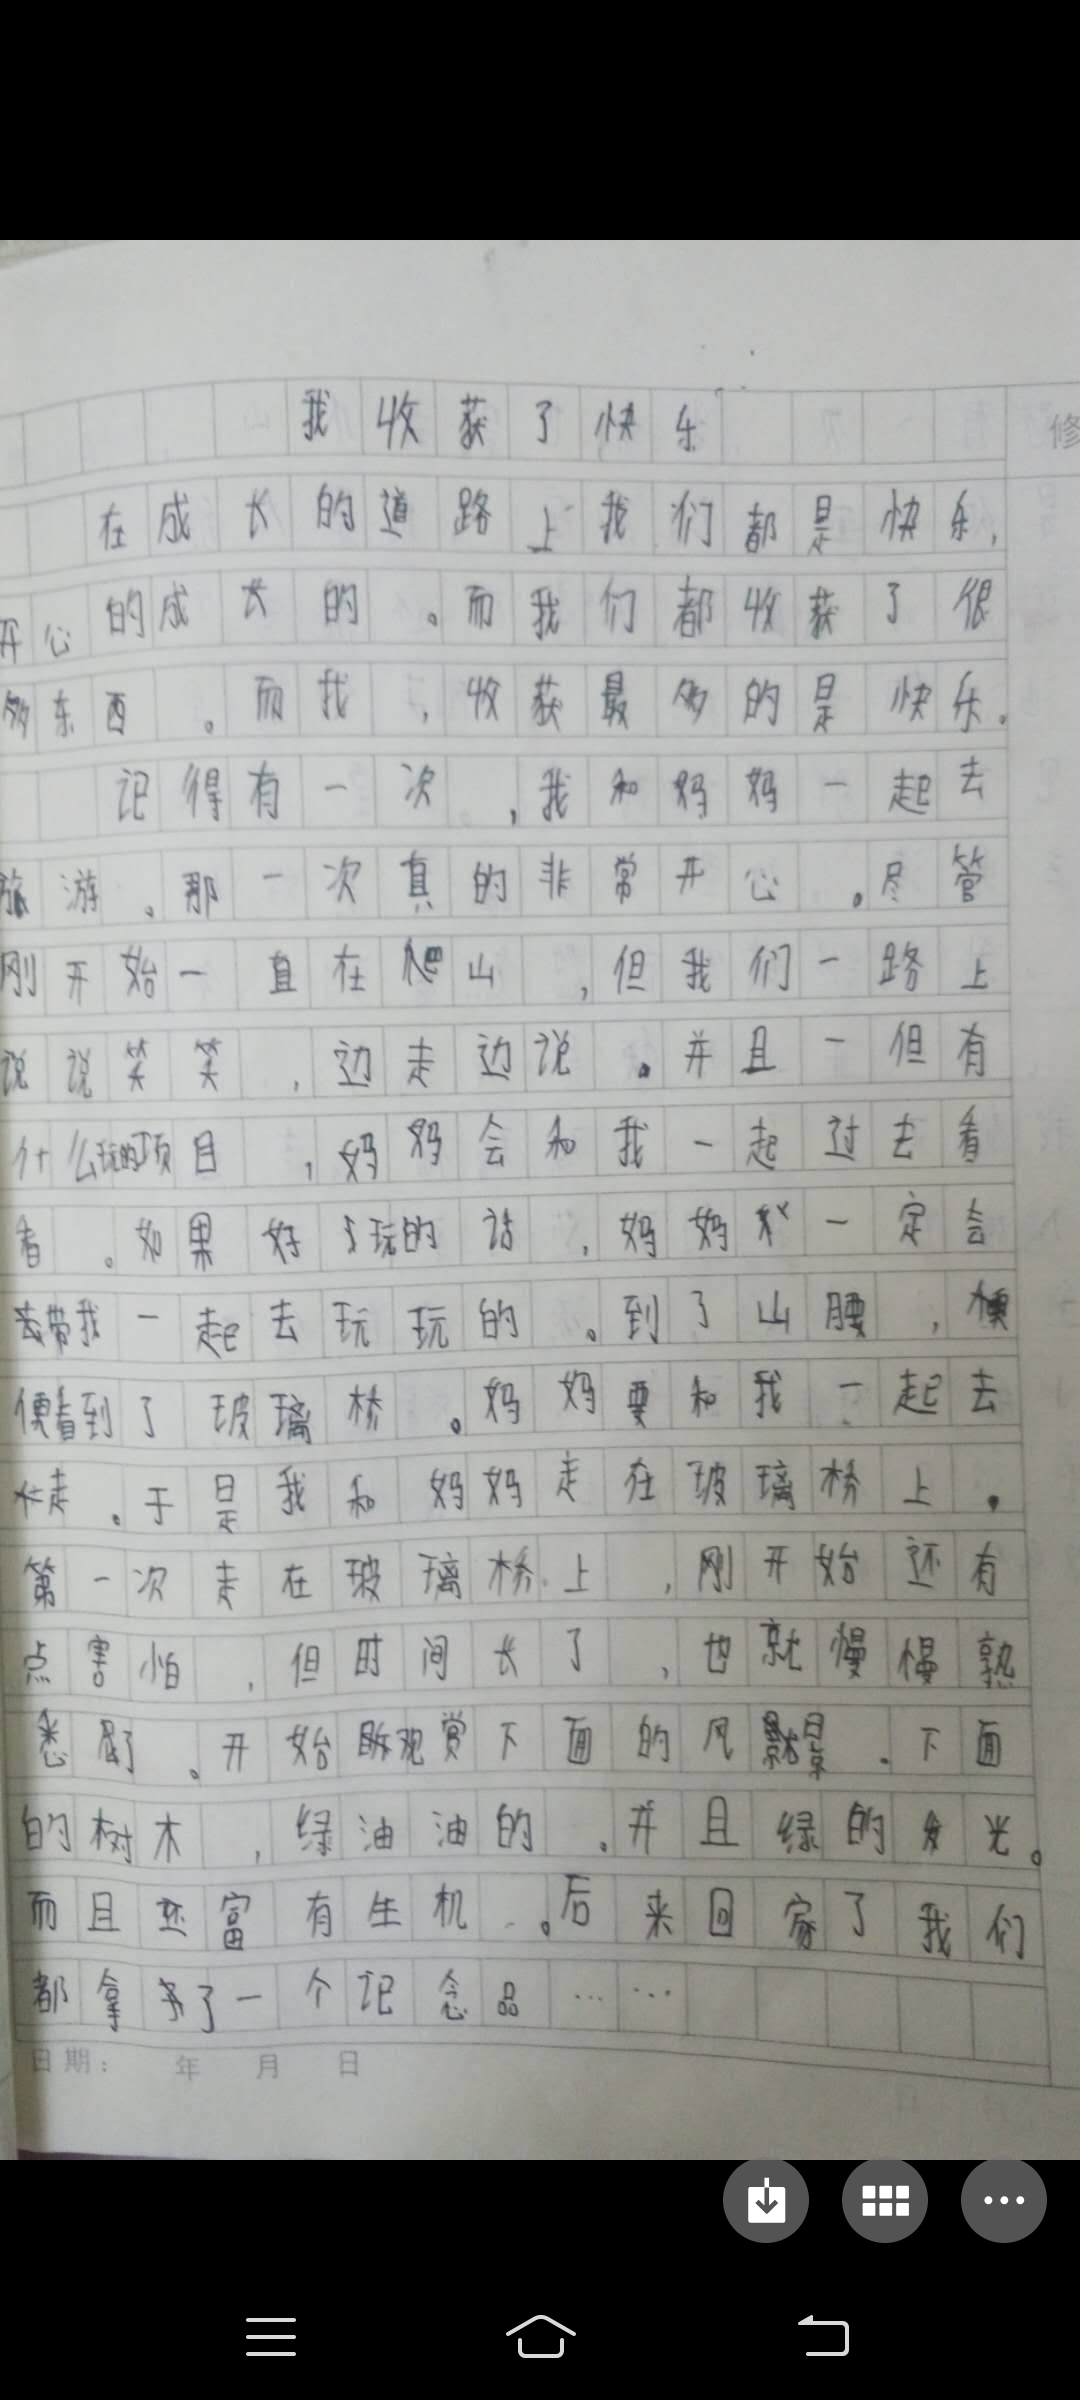 我收获了快乐
修
在成长的道路上我们都是快乐,
开心的成长的。而我们都收获了很
多东西。而我,收获最多的是快乐。
记得有一次,我和妈妈一起去
旅游。那一次真的非常开心。尽管
刚开始一直在爬山,但我们一路上
说说笑笑,边走边说。并且一但有
什么玩的项目,妈妈会和我一起过去看
看。如果好玩的话,妈妈一定会
去带我一起去玩玩的。到了山腰,
便看到了玻璃桥。妈妈要和我一起去
走。于是我和妈妈走在玻璃桥上。
第一次走在玻璃桥上,刚开始还有
点害怕,但时间长了,也就慢慢熟
悉了。开始观赏下面的风景。下面
的树木,绿油油的。并且绿的发光。
而且还富有生机。后来回家了我们
都拿了一个记念品……
日期: 年 月 日